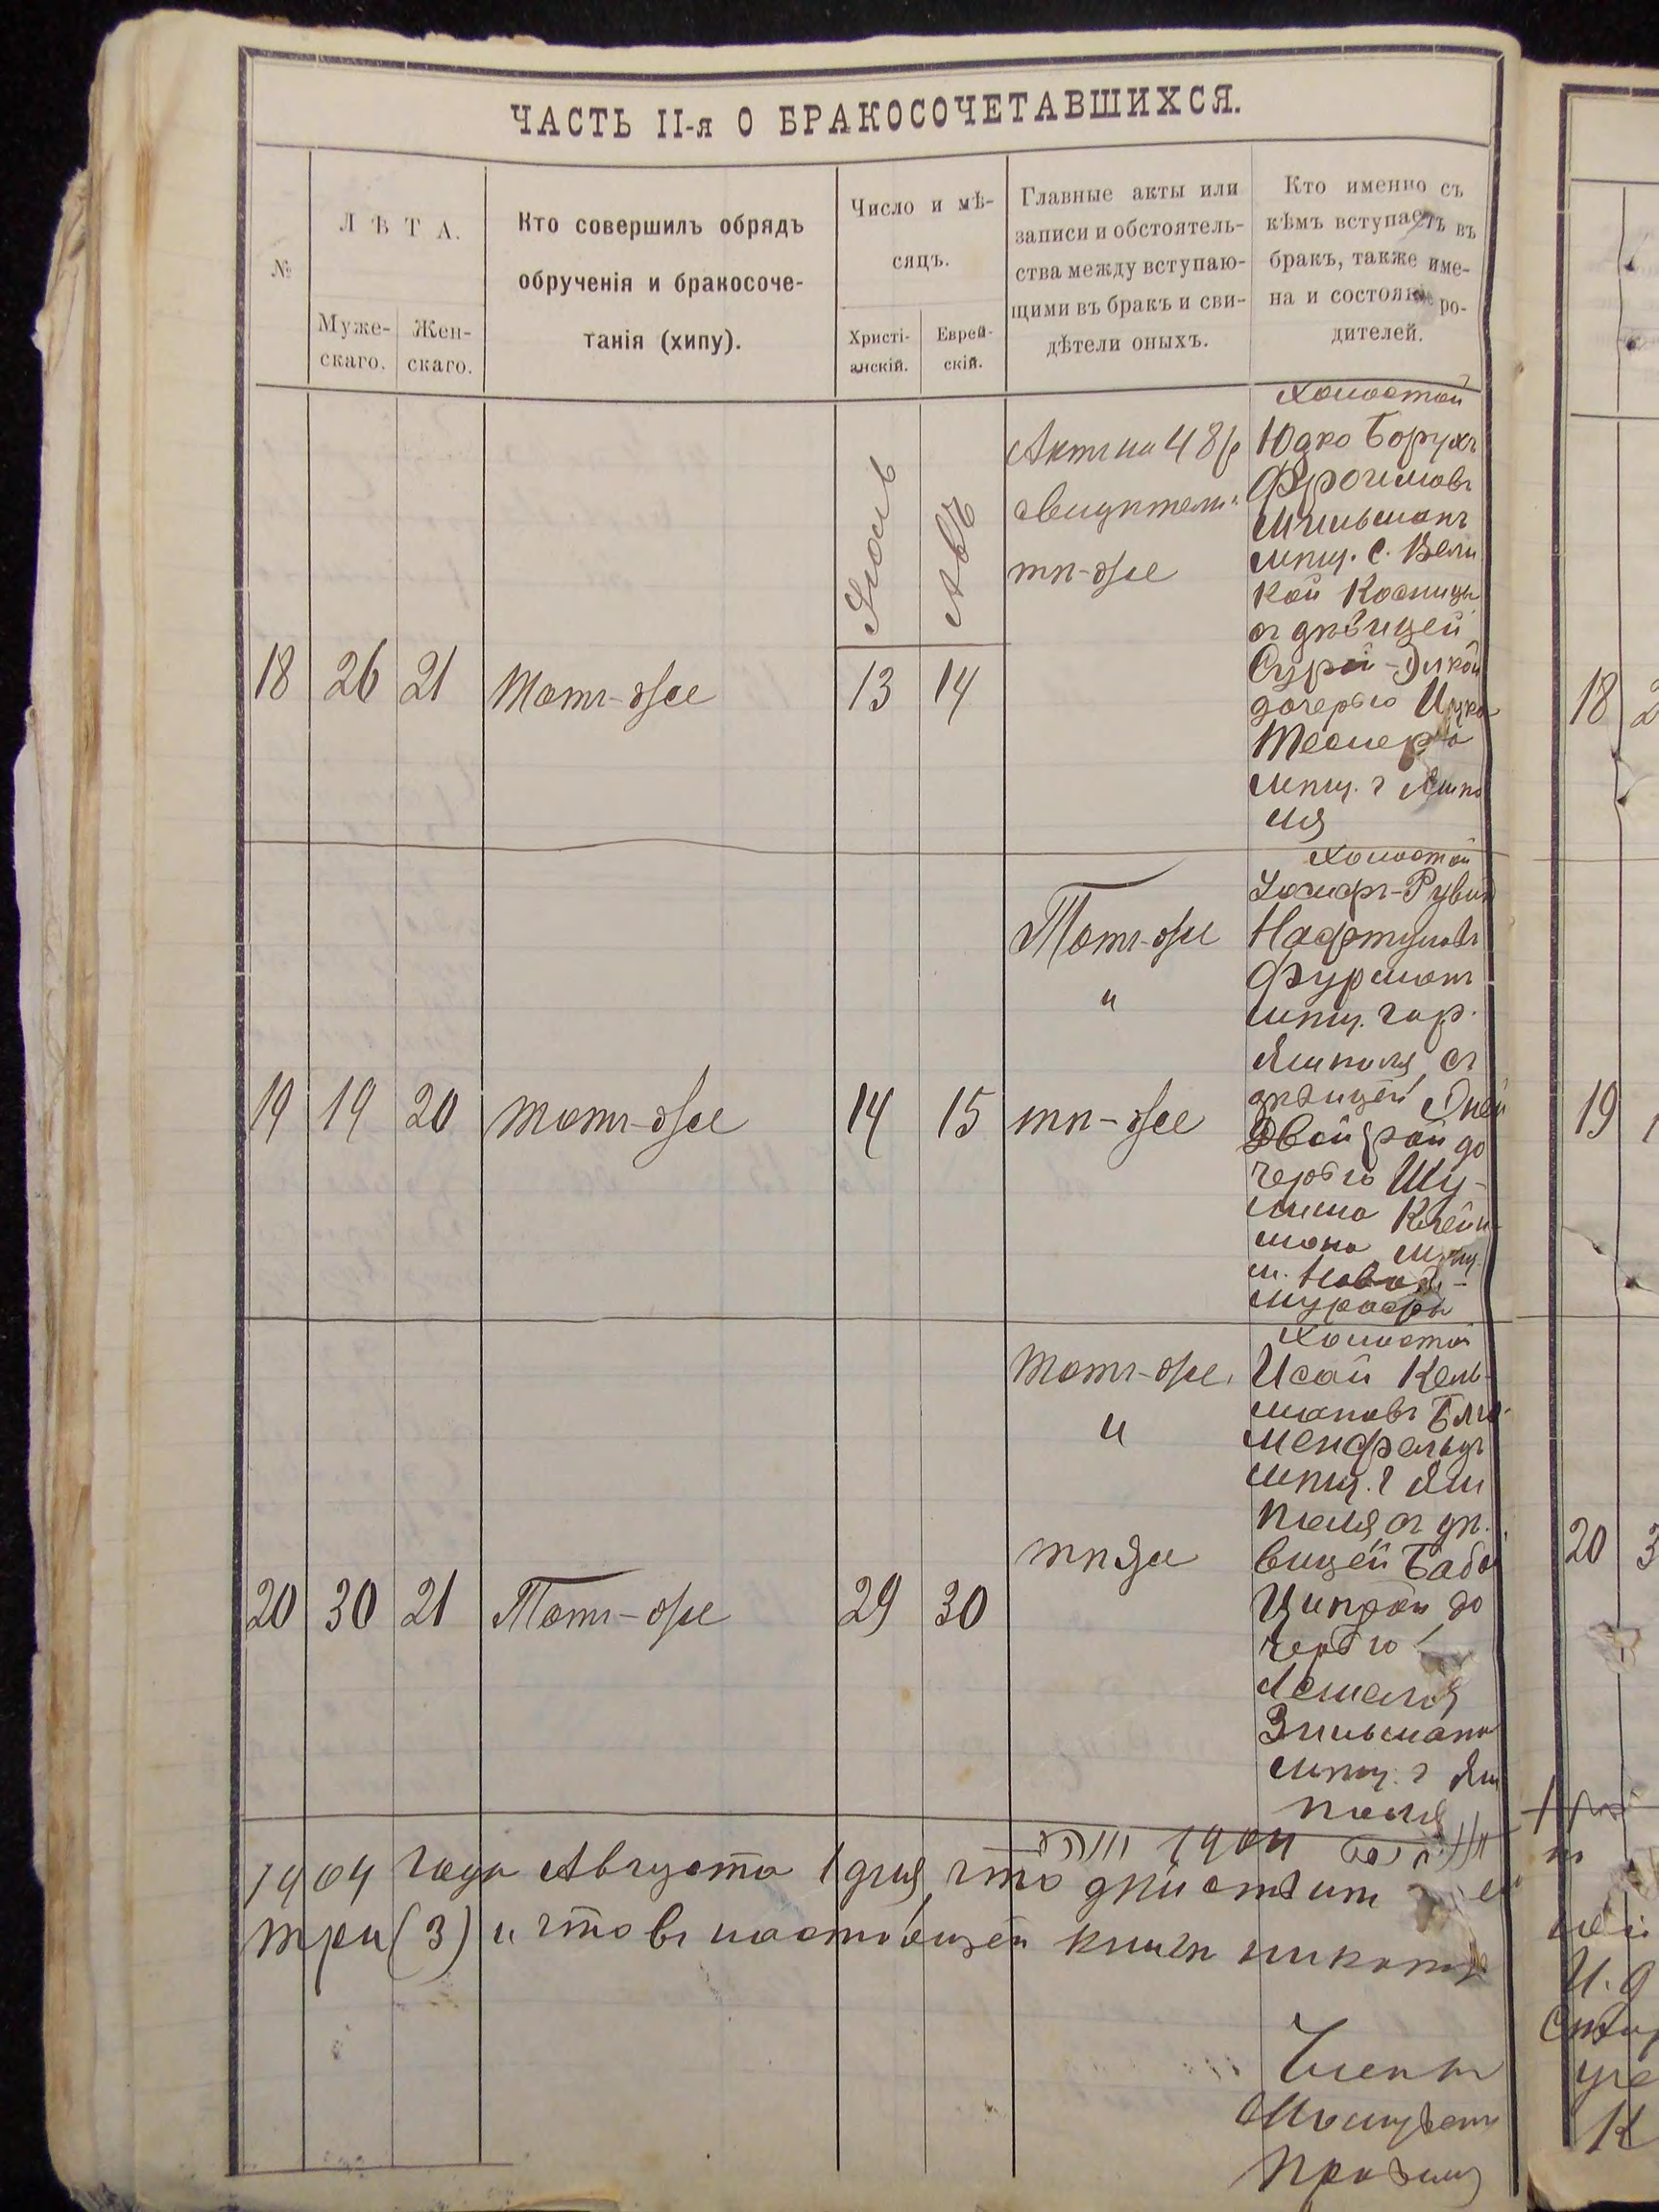 ЧАСТЬ II-я О БРАКОСОЧЕТАВШИХСЯ.
№
ЛѢТА.
Муже-
скаго.
Жен-
скаго.
Кто совершилъ обрядъ
обрученія и бракосоче-
танія (хипу).
Число и мѣ-
сяцъ.
Христі-
анскій.
Еврей-
скій.
Главные акты или
записи и обстоятель-
ства между вступаю-
щими въ бракъ и сви-
дѣтели оныхъ.
Кто именно съ
кѣмъ вступаетъ въ
бракъ, также име-
на и состояніе ро-
дителей.
18 26 21 Тотъ-же
Іюль 13
Авъ 14
Актъ на 48 р
свидѣтели
тѣ-же
холостой
Юдко Борухъ
Фроимовъ
мѣщ. с. Вели
кой Косницы
съ дѣвицей
Сурой-Элкой
дочерью Ицка
Теслера
мѣщ. г Ямпо
ля
19 19 20 тотъ-же 14 15
Тотъ-же
и
тѣ-же
холостой
Іосифъ-Рувин
Нафтуловъ
Фурманъ
мѣщ. гор.
Ямполя съ
дѣвицей
Двойрой до
черью Шу-
лима Клейн-
мана мѣщ.
м.
Мурафы
20 30 21 Тотъ-же 29 30
Тотъ-же
и
тѣ же
холостой
Исай Кель-
мановъ Блю-
менфельдъ
мѣщ. г Ям
поля съ дѣ-
вицей Баба
Ципрой до
черью
Зильмана
мѣщ. г Ям
поля
1904 года Августа 1 дня, что дѣйствит
три (3) и что въ настоящей книгѣ никаких
Члены
18
19
20